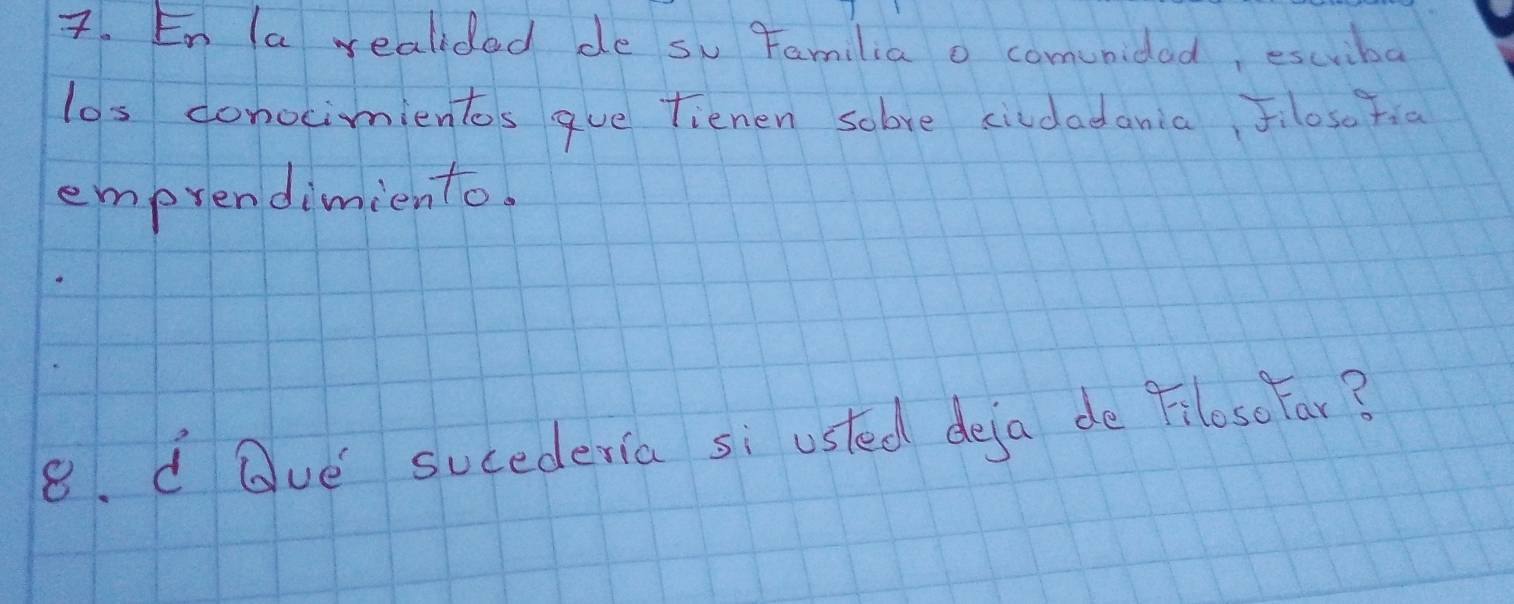 7. En la realidad de su familia o comunidad, escriba
los conocimientos que tienen sobre ciudadania, filosofia
emprendimiento.
.
.
8. ¿Qué sucedería si usted deja de filosofar?